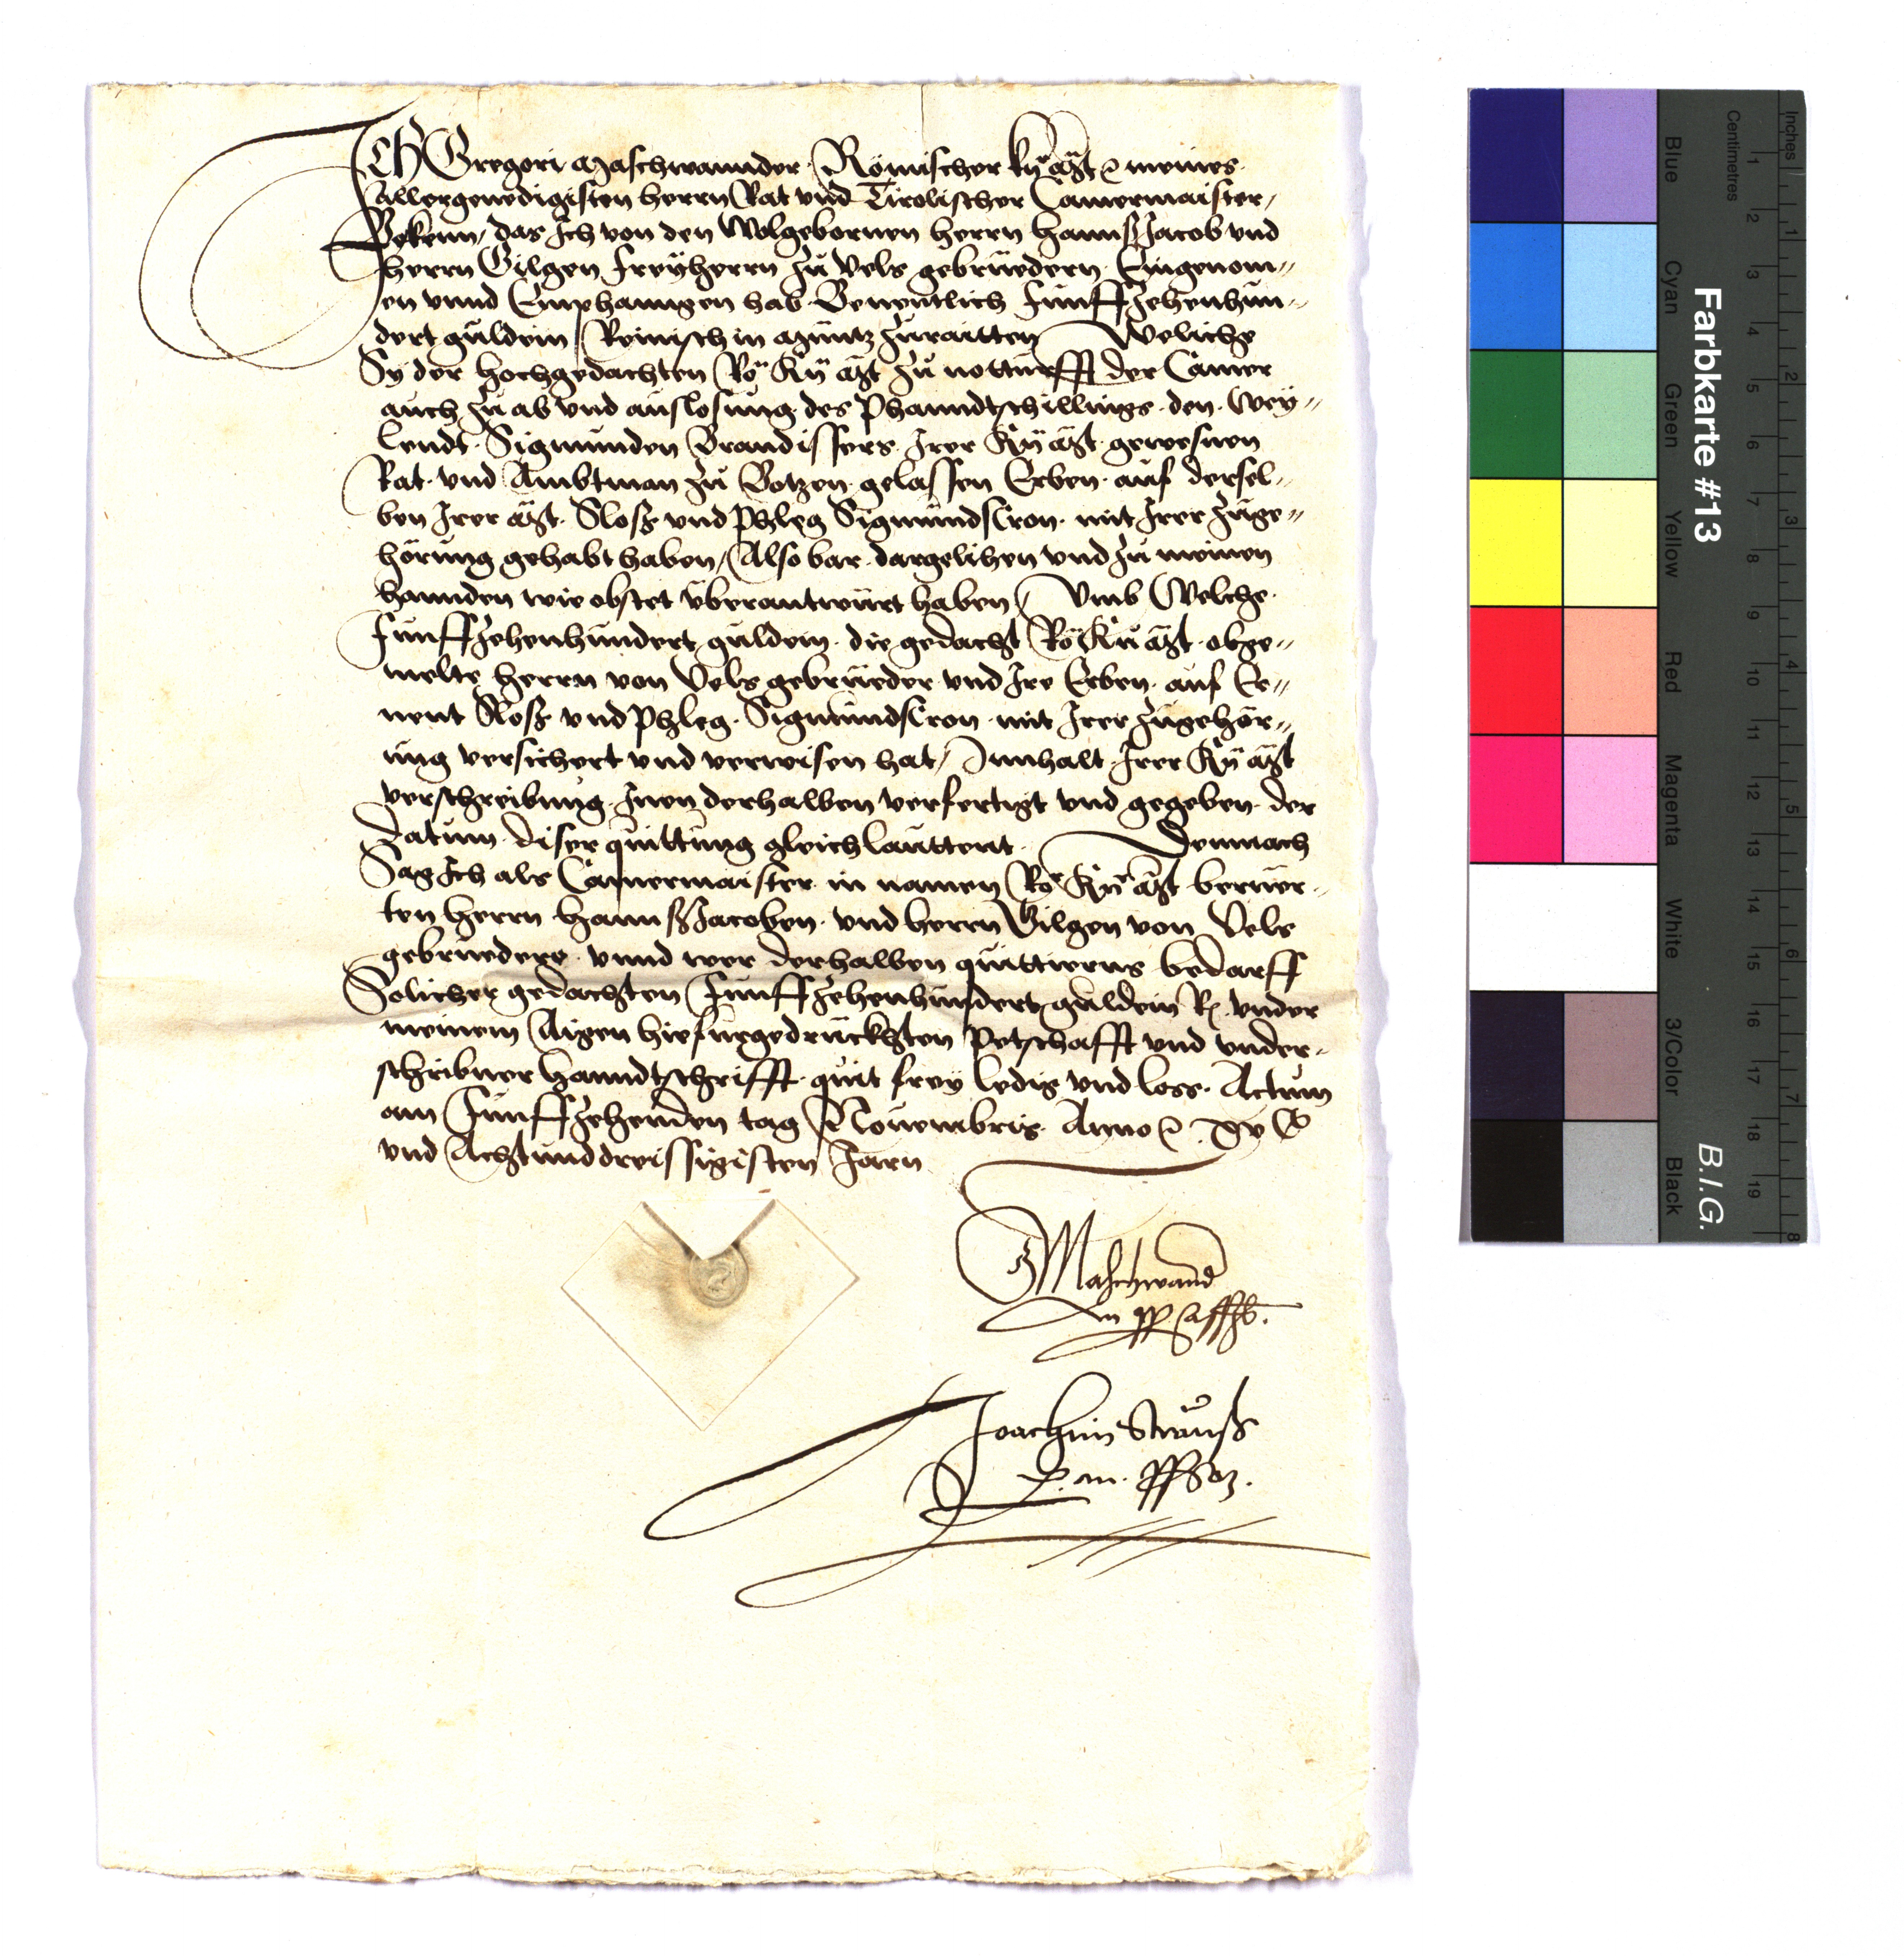 Ich Gregori Maschwannder Römischer kü Mt ꝛc meines
Allergenedigisten herrn Rat vnd Tirolischer Camermaister,
Bekenn, das Ich von den Wolgebornen herrn hannß Jacob vnd
herrn Gilgen freyherrn zu Vels gebrüedern Eingenom〃
en vnnd Emphanngen hab Benentlich Funffzehenhun〃
dert guldein Reinisch in Müntz zuraitten Weliche
Sy der hochgedachten Rö Kü Mt zu notturfft der Camer
auch zu ab vnd auslosung des Phanndtschillings den Wey〃
lendt Sigmunden Brandissers Irer Kü Mt gewesnen
Rat vnd Ambtman zu Botzen gelassen Erben auf dersel〃
ben Irer Mt Sloß vnd Phleg Sigmundscron mit Irer zuge〃
hörung gehabt haben, Also bar dargelihen vnd zu meinen
hannden wie obstet vberantwurt haben, Vmb Welche
Funffzehenhundert guldein die gedacht Rö Kü Mt obge〃
melte herrn von Vels gebrüeder vnd Ire Erben auf Er〃
nent Sloß vnd Phleg Sigmundscron mit Irer zugehör〃
ung versichert vnd verwisen hat, Innhalt Irer Kü Mt
verschreibung Inen derhalben verfertigt vnd gegeben der
datum diser quittung gleichlauttent Demnach
Sag Ich als Camermaister in namen Rö Kü Mt berüer〃
ten herrn hannß Jacoben vnd herrn Gilgen von Vels
gebrüedere vnnd wer derhalben quittierns bedarff
Solicher gedachten Funffzehenhundert guldein R. vnder
meinem Aigen hiefürgedruckhten Petschafft vnd vnder〃
schribner hanndtschrifft quit frey ledig vnd loss. Actum
am Funffzehenden tag Nouembris Anno ꝛc xvC
vnd Achtunddreissigisten Jarn
G Maschwand
Joachim Strauß
Farbkarte #13
B.I.G.
Centimetres
Inches
1 2 3 4 5 6 7 8 9 10 11 12 13 14 15 16 17 18 19
1 2 3 4 5 6 7 8
Blue
Cyan
Green
Yellow
Red
Magenta
White
3/Color
Black